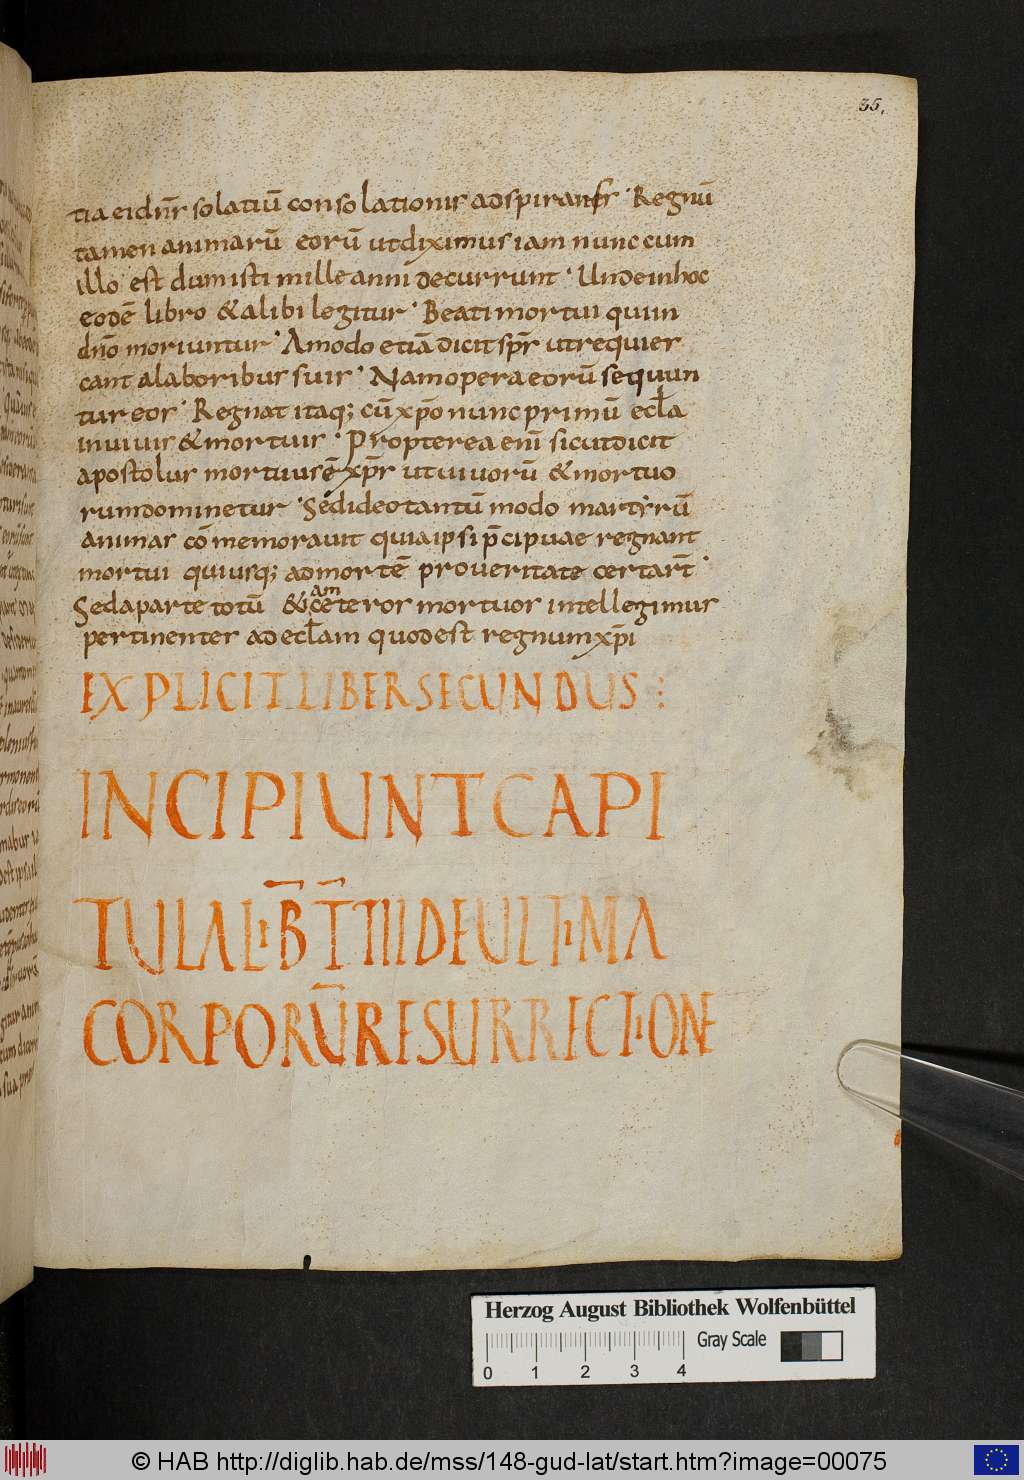 35,
tia eidn̄r solatiū consolationis adspirans · Regnū
tamen animarū eorū utdiximus iam nunc cum
illo est dum isti mille anni decurrunt · Unde in hoc
eodē libro & alibi legitur · Beati mortui qui in
dn̄o moriuntur · Amodo etiā dicit sp̄s ut requies
cant a laboribus suis · Nam opera eorū sequun
tur eos · Regnat itaq; cū xp̄o nunc primū eccl̄a
in uiuis & mortuis · Propterea enī sicut dicit
apostolus mortuus ē xp̄s ut uiuorū & mortuo
rum dominetur · Sed ideo tantū modo martyrū
animas cōmemorauit quia ipsi p̄cipuae regnant
mortui qui usq; ad mortē pro ueritate certart̄ ·
Sed a parte totū &iam ceteros mortuos intellegimus
pertinentes ad eccl̄am quod est regnum xp̄i
EXPLICIT LIBER SECUNDUS :
INCIPIUNT CAPI
TULA LIB̄ T̄III DE ULTIMA
CORPORŪ RESURRECTIONE
Herzog August Bibliothek Wolfenbüttel
Gray Scale
0 1 2 3 4
© HAB http://diglib.hab.de/mss/148-gud-lat/start.htm?image=00075